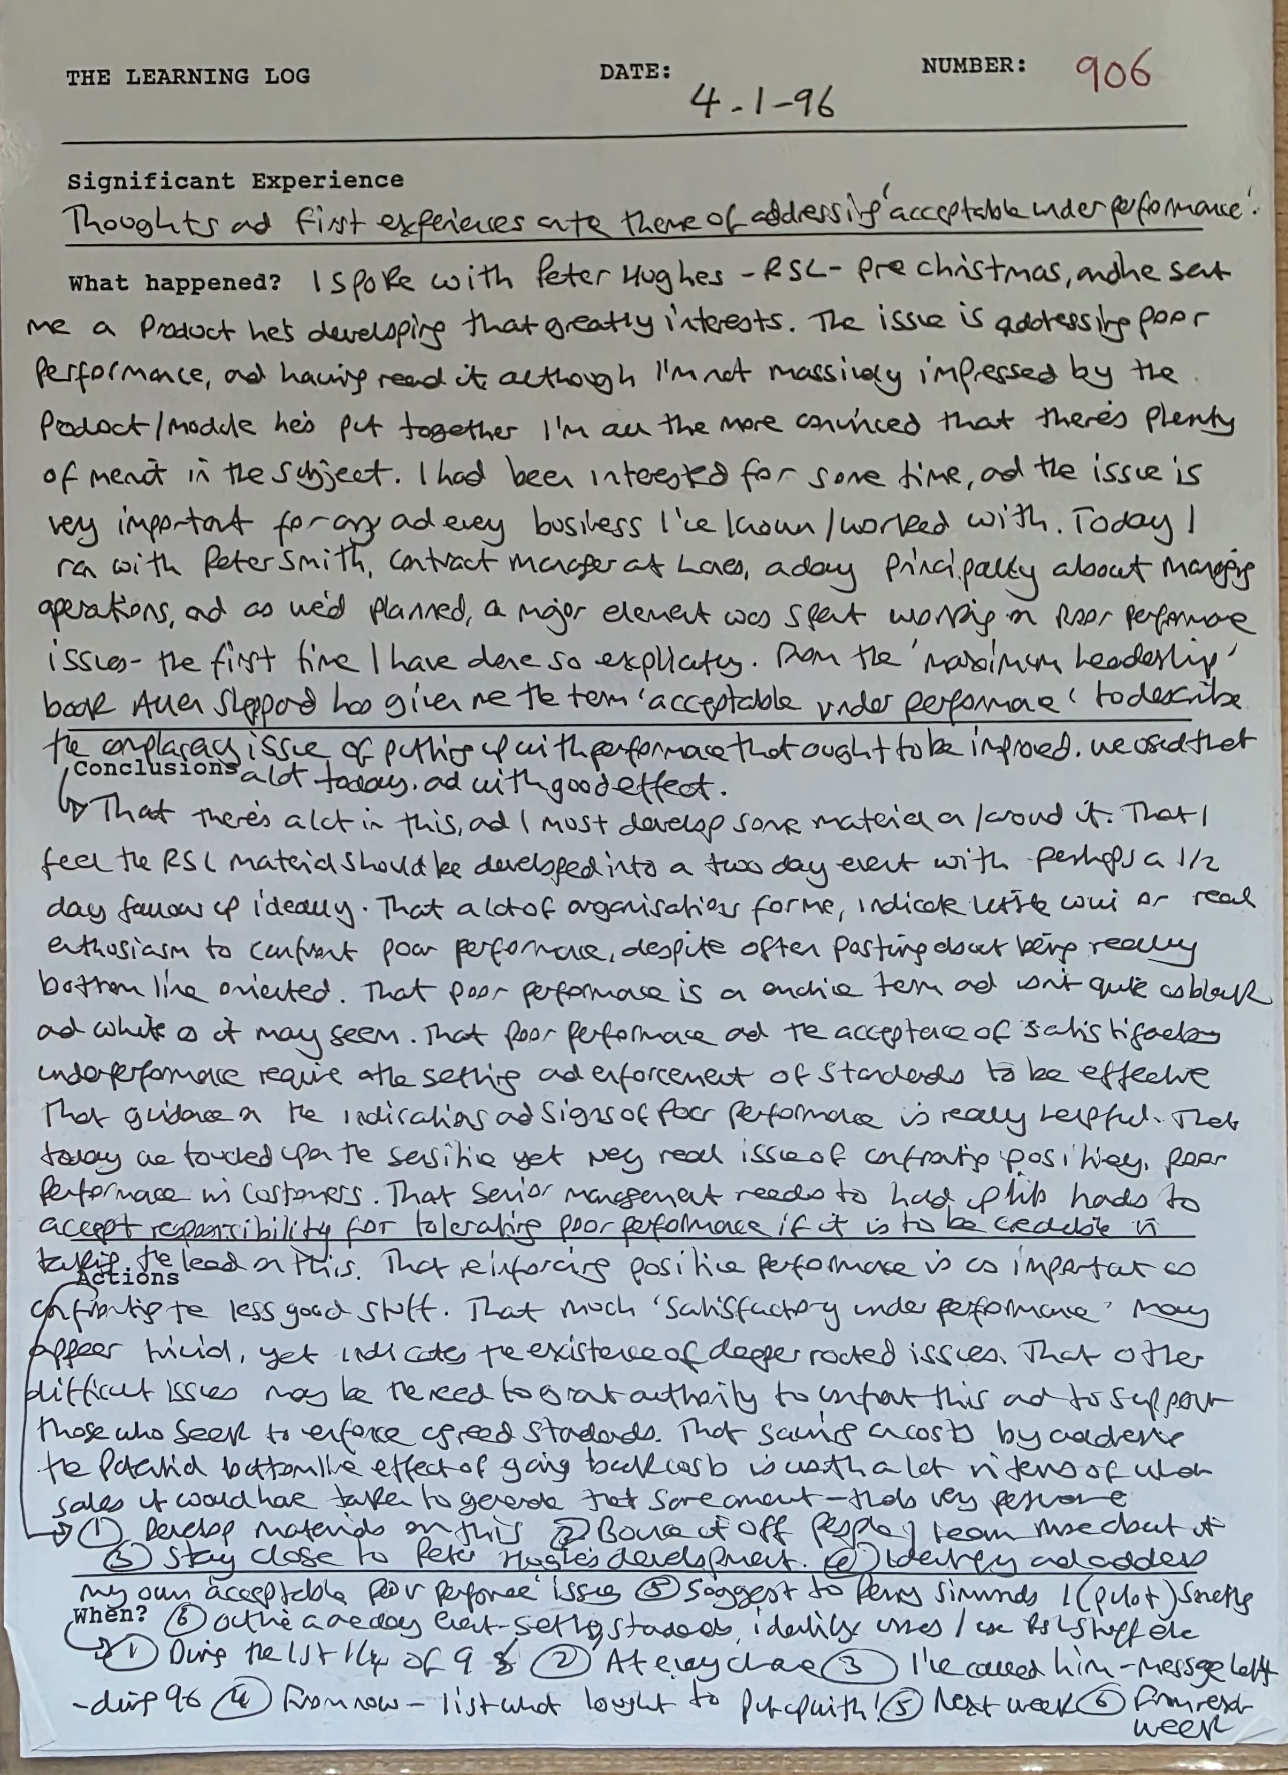 THE LEARNING LOG DATE: 4-1-96 NUMBER: 906
Significant Experience
Thoughts ad first experiences on te theme of addressing 'acceptable under performance'.
What happened? I spoke with Peter Hughes - RSL - pre christmas, and he sent
me a product he's developing that greatly interests. The issue is addressing poor
performance, ad having read it, although I'm not massively impressed by the
product/module he's put together I'm all the more convinced that there's plenty
of merit in the subject. I had been interested for some time, ad the issue is
very important for any ad every business I've known/worked with. Today I
ran with Peter Smith, contract manager at, a day principally about managing
operations, and as we'd planned, a major element was spent working on poor performance
issues - the first time I have done so explicitly. From the 'maximum leadership'
book Allen Sheppard has given me the term 'acceptable under performance' to describe
the complacency issue of putting up with performance that ought to be improved. We used that
Conclusions a lot today, ad with good effect.
That there's a lot in this, ad I must develop some material on/around it. That I
feel the RSL material should be developed into a two day event with perhaps a 1/2
day follow up ideally. That a lot of organisations for me, indicate little will or real
enthusiasm to confront poor performance, despite often posting about being really
bottom line oriented. That poor performance is a term ad isn't quite as black
ad white as it may seem. That poor performance ad te acceptance of satisfactory
underperformance require the setting ad enforcement of standards to be effective
That guidance on the indications ad signs of poor performance is really helpful. That
today we touched upon the sensitive yet very real issue of confronting positively, poor
performance in customers. That senior management needs to hold up its hands to
accept responsibility for tolerating poor performance if it is to be credible in
taking the lead on this. That reinforcing positive performance is as important as
Actions
confronting te less good stuff. That much 'satisfactory under performance' may
appear trivial, yet indicates the existence of deeper rooted issues. That other
difficult issues may be the need to grant authority to confront this ad to support
those who seek to enforce agreed standards. That saving on costs by addressing
the potential bottom line effect of going back is worth a lot in terms of what
sales it would have taken to generate that same amount - that's very persuasive
① Develop materials on this ② Bounce it off people, learn more about it
③ Stay close to Peter Hughes's development. ④ Identify ad address
my own 'acceptable poor performance' issues ⑤ Suggest to Perry Simmonds 1 (pilot)
When? ⑥ Outline a one day event - setting standards, identify issues / use RSL stuff etc
① During the 1st 1/4 of 96 ② At every chance ③ I've called him - message left
- during 96 ④ From now - list what I ought to put up with! ⑤ Next week ⑥ From next
week